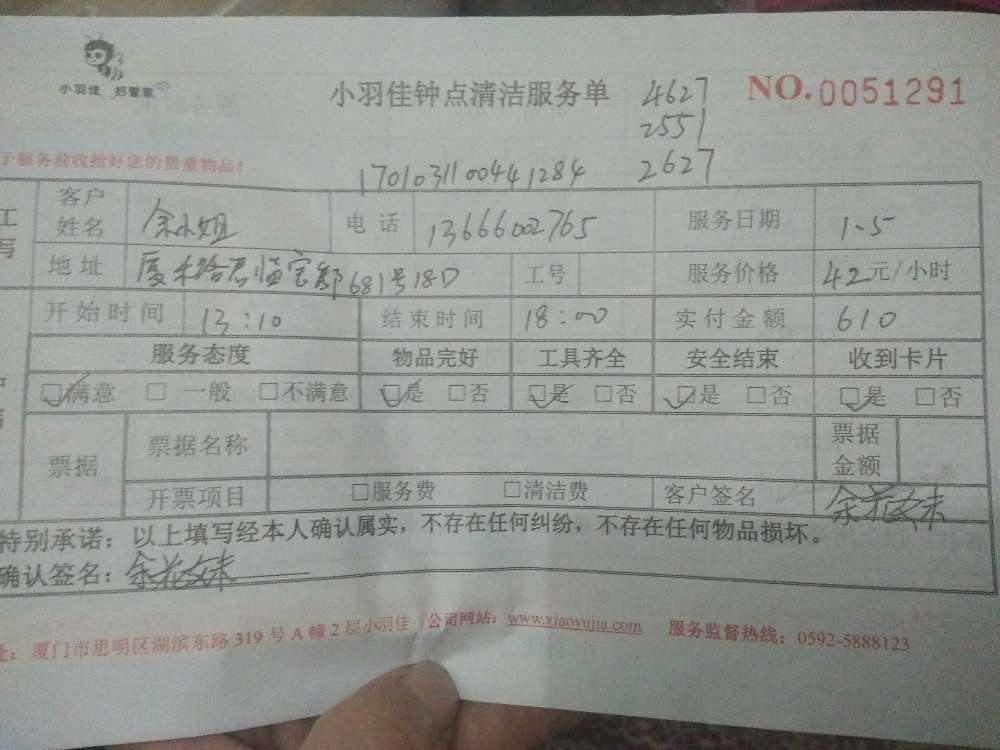 小羽佳 好管家
小羽佳钟点清洁服务单 4627 NO.0051291
2551
于服务前收拾好您的贵重物品!
1701031100441284 2627
工 客户姓名 余小姐 电话 13666002765 服务日期 1.5
写 地址 厦禾路君临宝邸681号18D 工号 服务价格 42元/小时
开始时间 13:10 结束时间 18:00 实付金额 610
服务态度 物品完好 工具齐全 安全结束 收到卡片
☑满意 □一般 □不满意 ☑是 □否 ☑是 □否 ☑是 □否 ☑是 □否
票据 票据名称 票据金额
开票项目 □服务费 □清洁费 客户签名 余
特别承诺：以上填写经本人确认属实，不存在任何纠纷，不存在任何物品损坏。
确认签名：余
址：厦门市思明区湖滨东路319号A幢2层小羽佳 公司网站：www.xiaoyujia.com 服务监督热线：0592-5888123